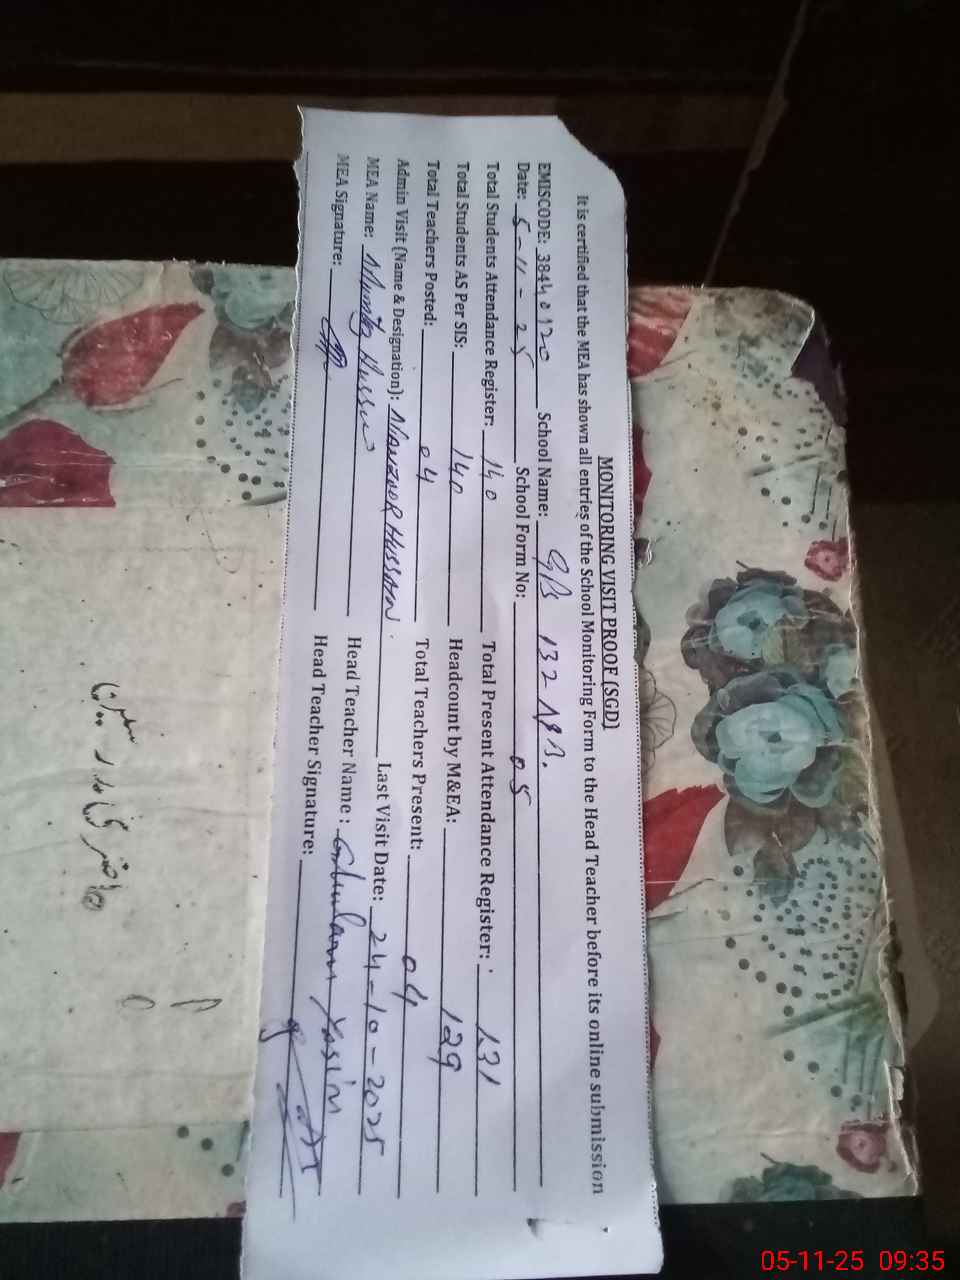 MONITORING VISIT PROOF (SGD)
It is certified that the MEA has shown all entries of the School Monitoring Form to the Head Teacher before its online submission
EMISCODE: 38440120 School Name: G/Ps 132 NB.
Date: 5-11-25 School Form No: 05
Total Students Attendance Register: 140 Total Present Attendance Register: 131
Total Students AS Per SIS: 140 Headcount by M&EA: 129
Total Teachers Posted: 04 Total Teachers Present: 04
Admin Visit (Name & Designation): MANZOOR HUSSAIN. Last Visit Date: 24-10-2025
MEA Name: Mumtaz Hussain Head Teacher Name : Ghulam Yassin
MEA Signature: Head Teacher Signature:
05-11-25 09:35